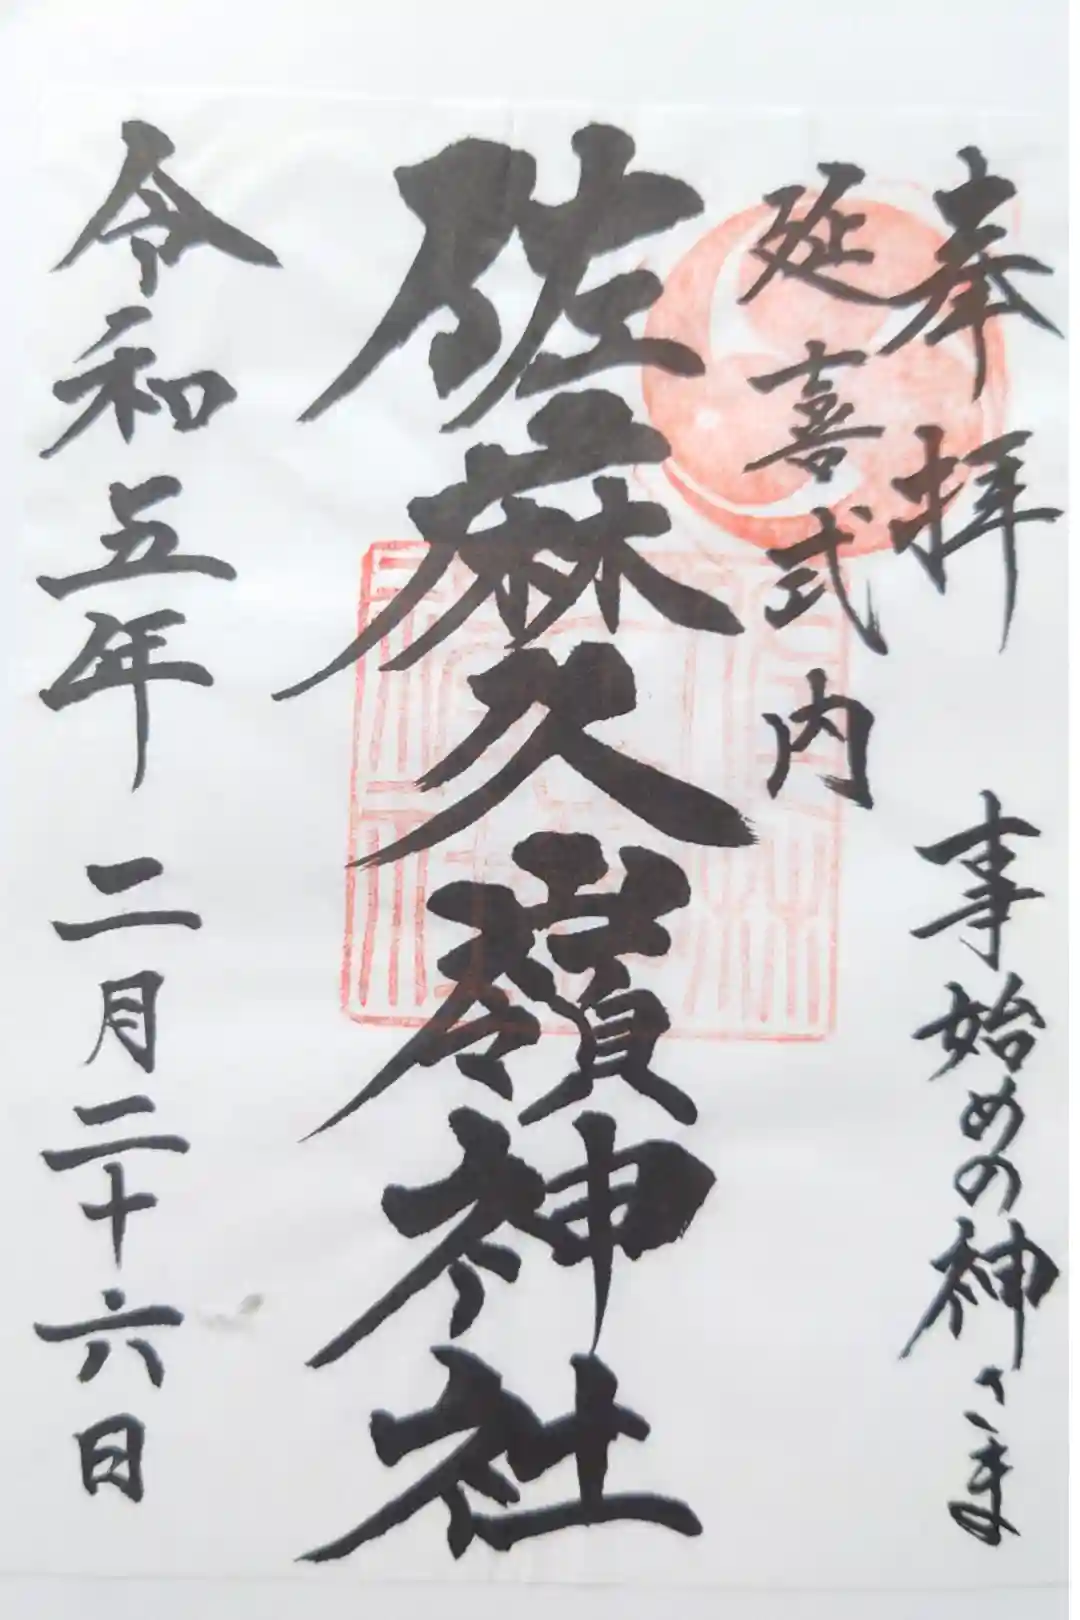 奉拝 事始めの神さま
延喜式内
佐麻久嶺神社
令和五年 二月二十六日